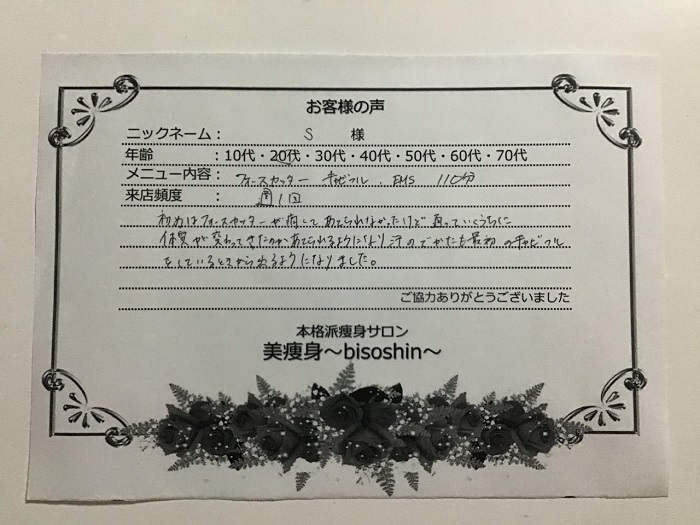 お客様の声
ニックネーム： S 様
年齢 ：10代・20代・30代・40代・50代・60代・70代
メニュー内容： フォースカッター キャビフル、EMS 110分
来店頻度 ： 週1回
初めはフォースカッターが痛してあてられなかったけど通っていくうちに
体質が変わってきたのかあてられるようになり汗のでかたも最初のキャビフル
をしているときから出るようになりました。
ご協力ありがとうございました
本格派痩身サロン
美痩身～bisoshin～